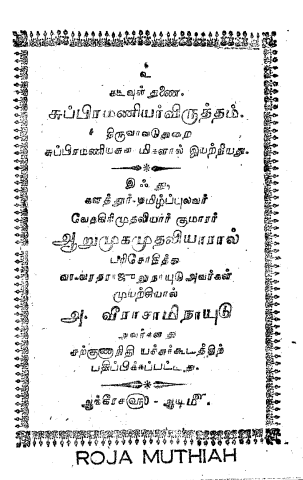 உ
கடவுள் துணை.
சுப்பிரமணியர்விருத்தம்.
திருவாவடுதுறை
சுப்பிரமணியசுவாமிகளால் இயற்றியது.
இஃது
களத்தூர்-தமிழ்ப்புலவர்
வேதகிரிமுதலியார் குமாரர்
ஆறுமுகமுதலியாரால்
பரிசோதித்து
வரதராஜுலுநாயுடு அவர்கள்
முயற்சியால்
அ. வீராசாமிநாயுடு
அவர்களது
சற்குணநிதி யச்சுக்கூடத்திற்
பதிப்பிக்கப்பட்டது.
ஆங்கீரசளு - ஆடிமீ.
ROJA MUTHIAH